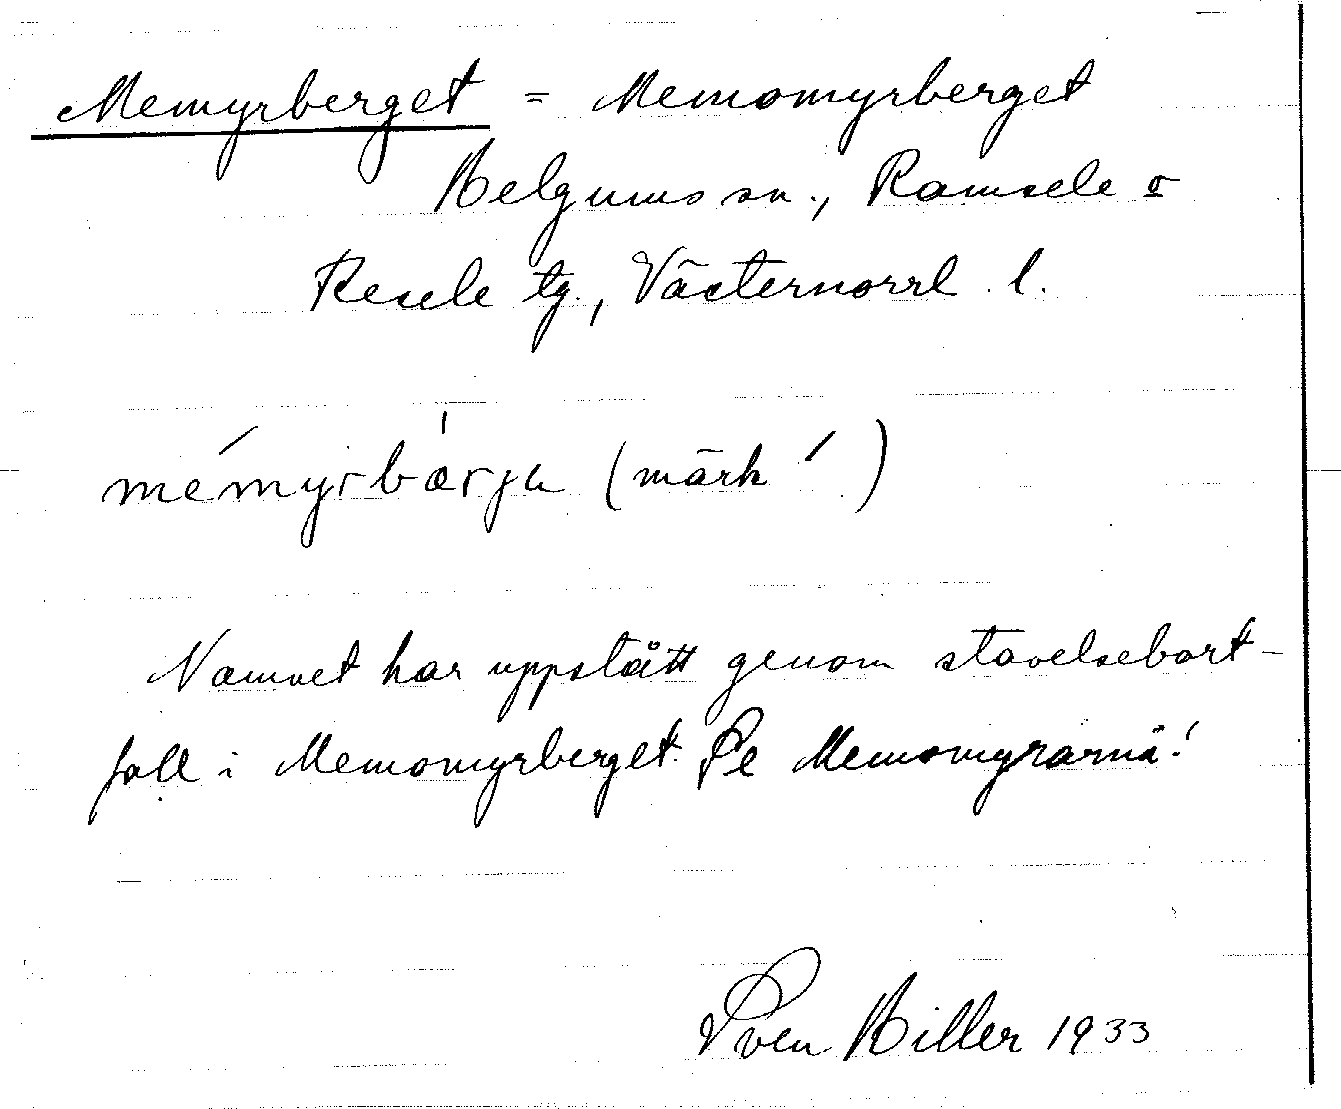 Memyrberget = Memomyrberget
Helgums sn., Ramsele o
Resele tg., Västernorrl. l.
mémyrbærja (märk ´)
Namnet har uppstått genom stavelsebort-
fall i Memomyrberget. Se Memomyrarna!
Sven Hiller 1933